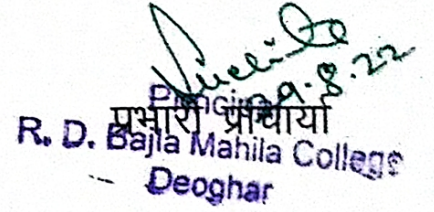 Suchita
29.8.22
Principal
प्रभारी प्राचार्या
R. D. Bajla Mahila College
Deoghar